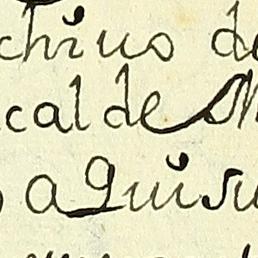 chivos de
calde M
a quisu